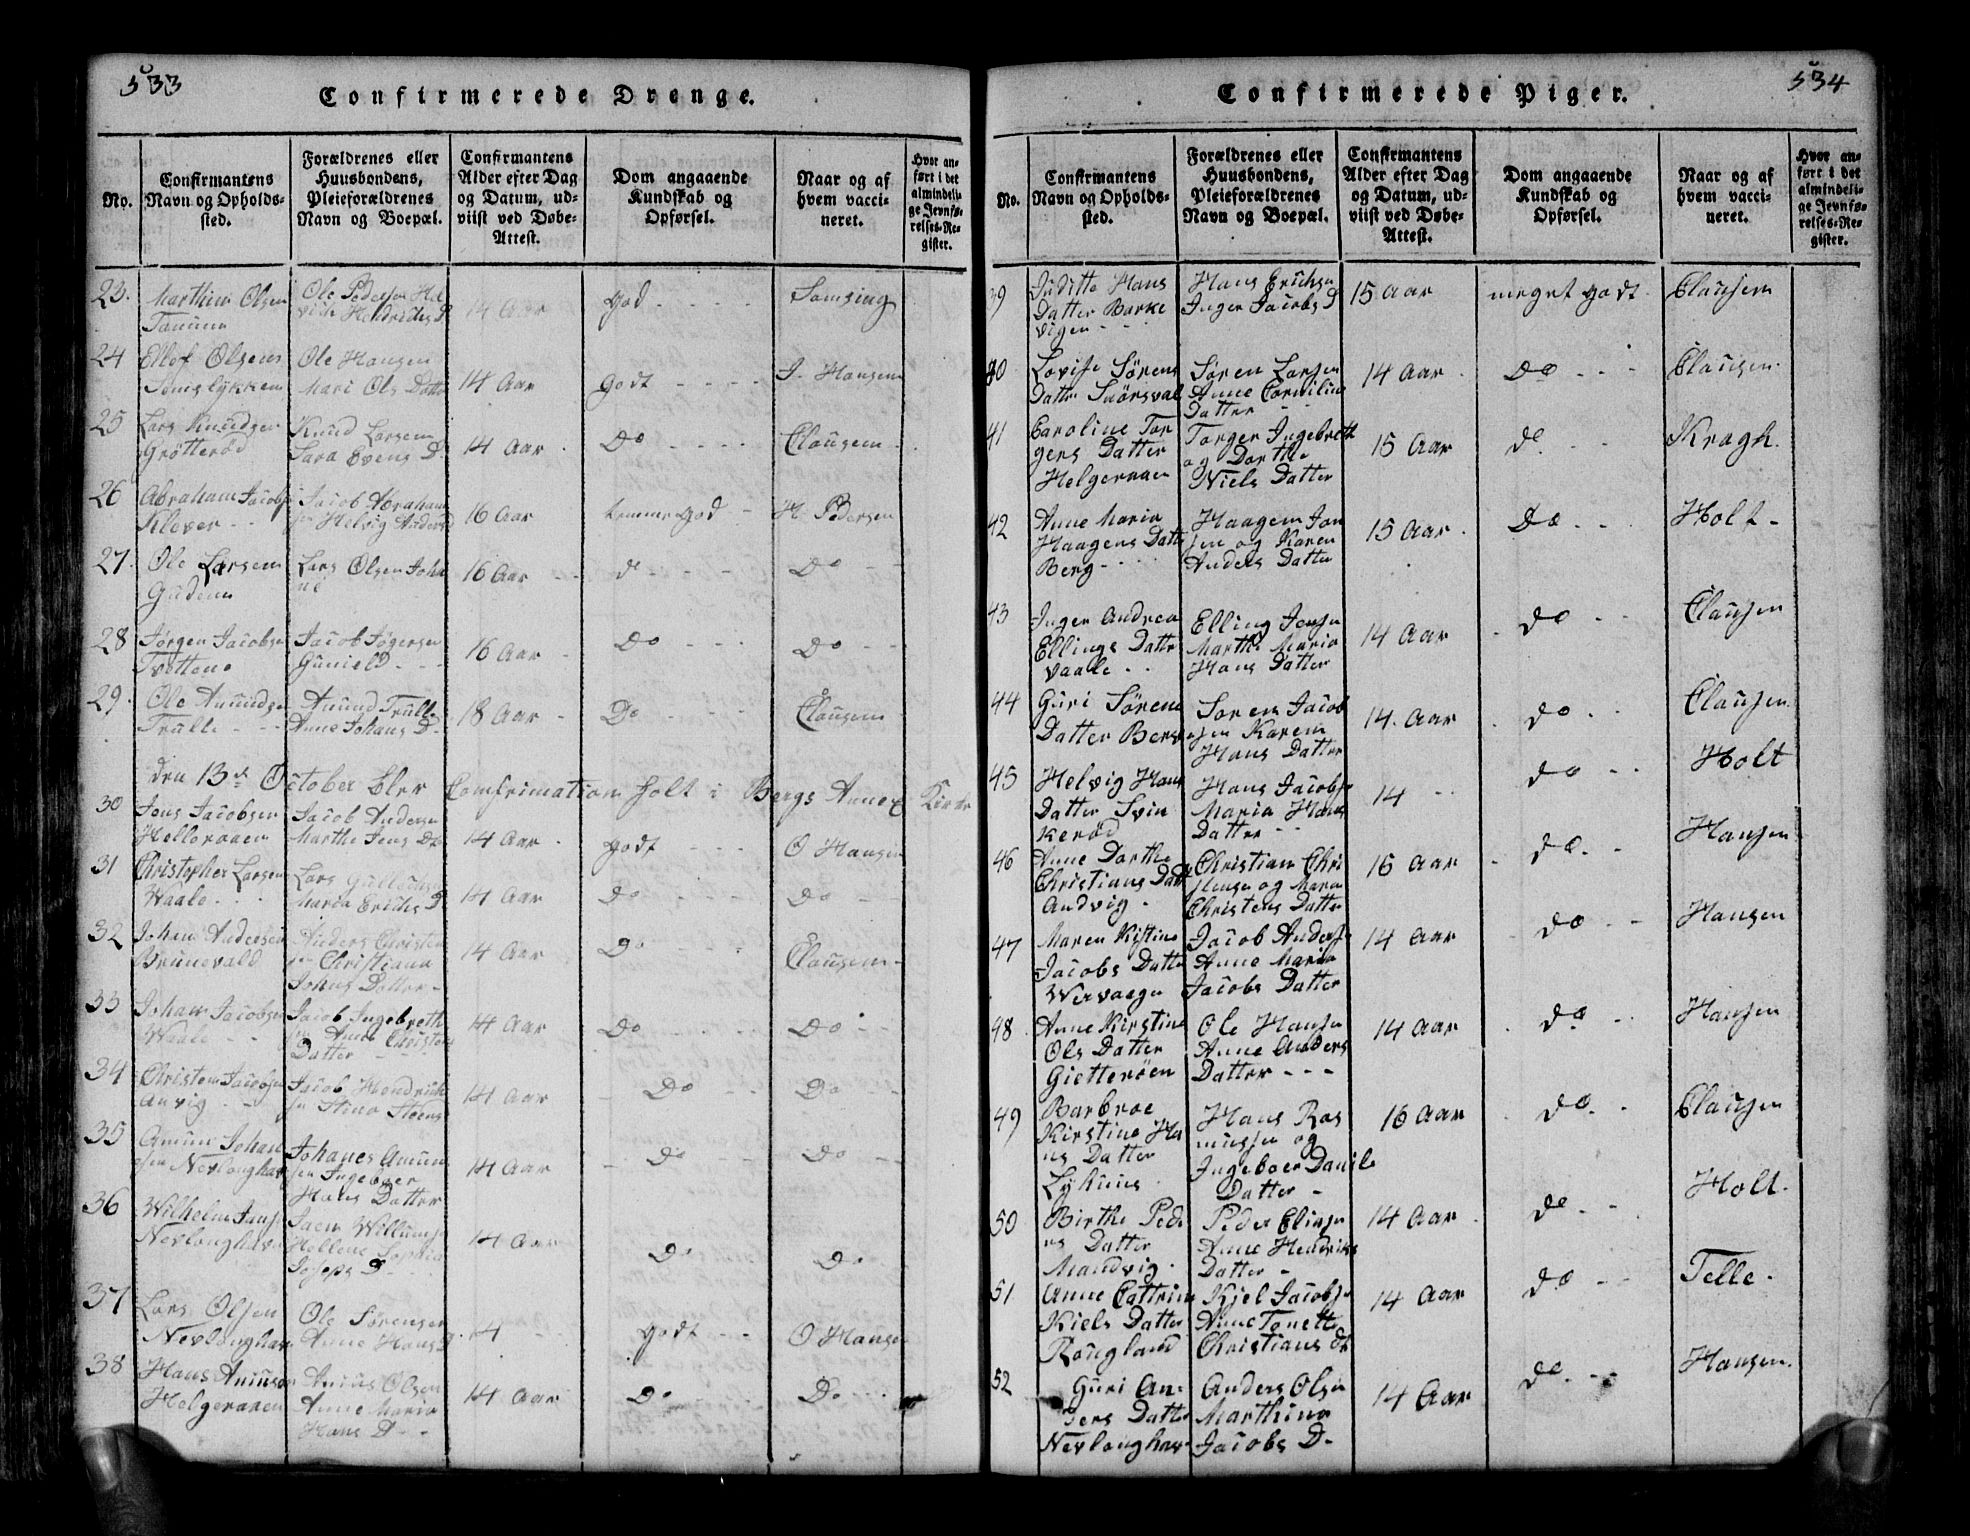 533
Confirmerede Drenge.
No.
Confirmantens
Navn og Opholds-
sted.
Forældrenes eller
Huusbondens,
Pleieforældrenes
Navn og Boepæl.
Confirmantens
Alder efter Dag
og Datum, ud-
viist ved Døbe-
Attest.
Dom angaaende
Kundskab og
Opførsel.
Naar og af
hvem vacci-
neret.
Hvor an-
ført i det
almindeli-
ge Jevnfø-
relses-Re-
gister.
23.
Marthin Olsen
Tanum
Ole Pedersen Hel
vide Hendrichs D
14 Aar
god
Samsing
24
Ellef Olsens
Ole Hansen
Mari Ols Datter
14 Aar
godt
J. Hansen
25
Lars Knudsen
Grötterød
Knud Larsen
Sara Evens D
14 Aar
Do
Clausen
26
Abraham Jacobs
Klever
Jacob Abraham
sen Helvig Anders D
16 Aar
temmegod
H. Pedersen
27.
Ole Larsen
Gudem
Lars Olsen Joha
ne
16 Aar
do
Do
28
Jørgen Jacobsen
Tvittene
Jacob Jøgersen
Guniold
16 Aar
Do
Do
29.
Ole Amundsen
Trulle
Amund Trulle
Anne Johans D
18 Aar
Do
Clausen
den 13de October blev Comfrimation holt i Bergs Annex Kirche
30
Jens Jacobsen
Helleraaen
Jacob Andersen
Marthe Jens Dt
14 Aar
godt
O Hansen
31
Christopher Larsen
Waale
Lars Gulbichs
Maria Erichs D
14 Aar
Do
Do
32
Johan Andersen
Brunevald
Anders Christen
sen Christiana
Johans Datter
14 Aar
Do
Clausen
33
Johan Jacobsen
Waale
Jacob Ingebreth
sen Anne Christens
Datter
14 Aar
Do
Do
34
Christen Jacobsen
Anvig
Jacob Hendrick
sen Stina Steens
14 Aar
Do
Do
35
Amun Johan
sen Nevlonghav
Johanes Amun
sen Ingeboer
Hans Datter
14 Aar
Do
Do
36
Wilhelm Jans
Nevlonghav
Jaen Willums
Hellene Sophia
Joseps D
14 Aar
Do
Do
37
Lars Olsen
Nevlonghav
Ole Sørensen
Anne Hans D.
14
godt
O Hansen
38
Hans Aniusen
Helgeraaen
Anius Olsen
Anne Maria
Hans D
14 Aar
Do
Do
534
Confirmerede Piger.
No.
Confirmantens
Navn og Opholds-
sted.
Forældrenes eller
Huusbondens,
Pleieforældrenes
Navn og Boepæl.
Confirmantens
Alder efter Dag
og Datum, ud-
viist ved Døbe-
Attest.
Dom angaaende
Kundskab og
Opførsel.
Naar og af
hvem vacci-
neret.
Hvor an-
ført i det
almindeli-
ge Jevnfø-
relses-Re-
gister.
39
Juditte Hans
Datter Barke
vigen
Hans Erichsen
Inger Jacobs D
15 Aar
meget godt
Clausen
40
Lovise Sørens
Datter Snörsval
Søren Larsen
Anne Corniline
Datter
14 Aar
Do
Clausen
41
Caroline Tor
gers Datter
Helgeraaen
Torger Ingebreth
og Dorthe
Niels Datter
15 Aar
do
Kragh
42
Anne Maria
Haagens Datter
Berg
Haagen Jon
sen og Karen
Anders Datter
15 Aar
Do
Holt
43
Inger Andrea
Ellings Datter
Vaale
Elling Jensen
Marthe Maria
Hans Datter
14 Aar
do
Clausen
44
Guri Sørens
Datter Berg
Soren Jacob
sen Karen
Hans Datter
14. Aar
do
Clausen
45
Helvig Hans
Datter Svin
kerød
Hans Jacobs
Maria Hans
Datter
14
do
Holt
46
Anne Dorthe
Christians Datt
Andvig
Christian Chri
stensen og Maren
Christens Datter
16 Aar
do
Hansen
47
Maren Kistine
Jacobs Datter
Wervaagen
Jacob Anders
Anne Maria
Jacobs Datter
14 Aar
do
Hansen
48
Anne Kirstine
Ols Datter
Gietterøen
Ole Hansen
Anne Anders
Datter
14 Aar
do
Hansen
49
Barbroe
Kirstine Ha
ns Datter
Lyhuus
Hans Ras
mussen og
Ingeboer Daniels
Datter
16 Aar
do
Clausen
50
Birthe Pede
rs Datter
Mandvig
Peder Elinsen
Anne Hendriks
Datter
14 Aar
do
Holt
51
Anne Cattrine
Kiels Datter
Rougland
Kjel Jacobsen
Anne Tonette
Christians Dt
14 Aar
do
Telle
52
Guri An-
ders Datter
Nevlonghav
Anders Olsen
Marthina
Jacobs D
14 Aar
do
Hansen